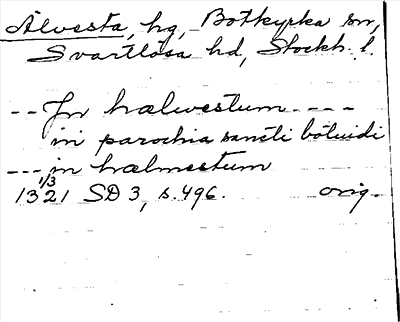 Älvesta, hg, Botkyrka sn,
Svartlösa hd, Stockh. l.
-- Jn hælwestum ----
in parochia sancti botuidi
--- in hælmestum
1/3
1321 SD 3, s. 496. orig.